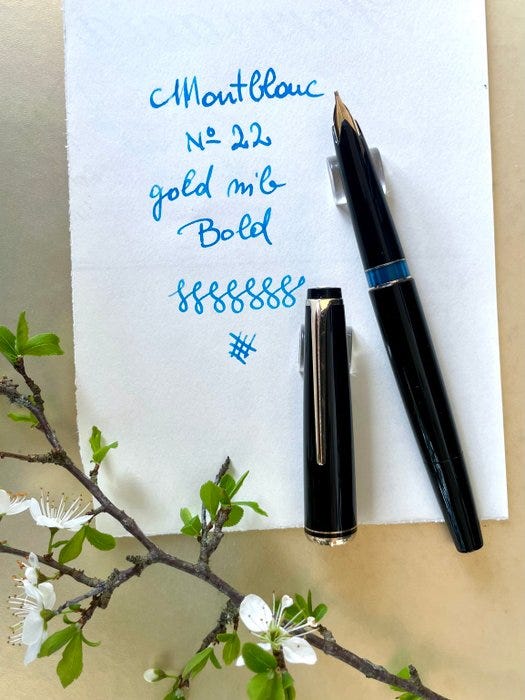 Montblanc
Nº 22
gold nib
Bold